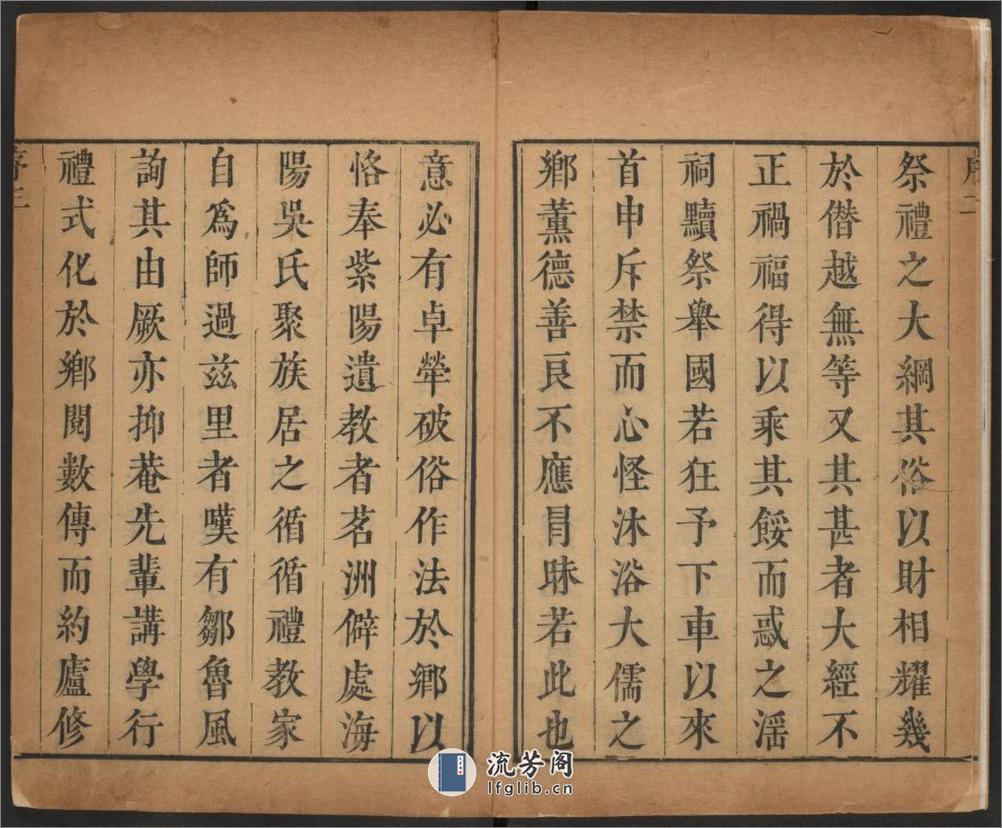 序二
祭禮之大綱其俗以財相耀幾
於僭越無等又其甚者大經不
正禍福得以乘其餒而惑之淫
祠黷祭舉國若狂予下車以來
首申斥禁而心怪沐浴大儒之
鄉薰德善良不應冐昧若此也
意必有卓犖破俗作法於鄉以
恪奉紫陽遺教者茗洲僻處海
陽吳氏聚族居之循循禮教家
自爲師過兹里者嘆有鄒魯風
詢其由厥亦抑菴先輩講學行
禮式化於鄉閱數傳而約廬修
序三
流芳阁
lfglib.cn